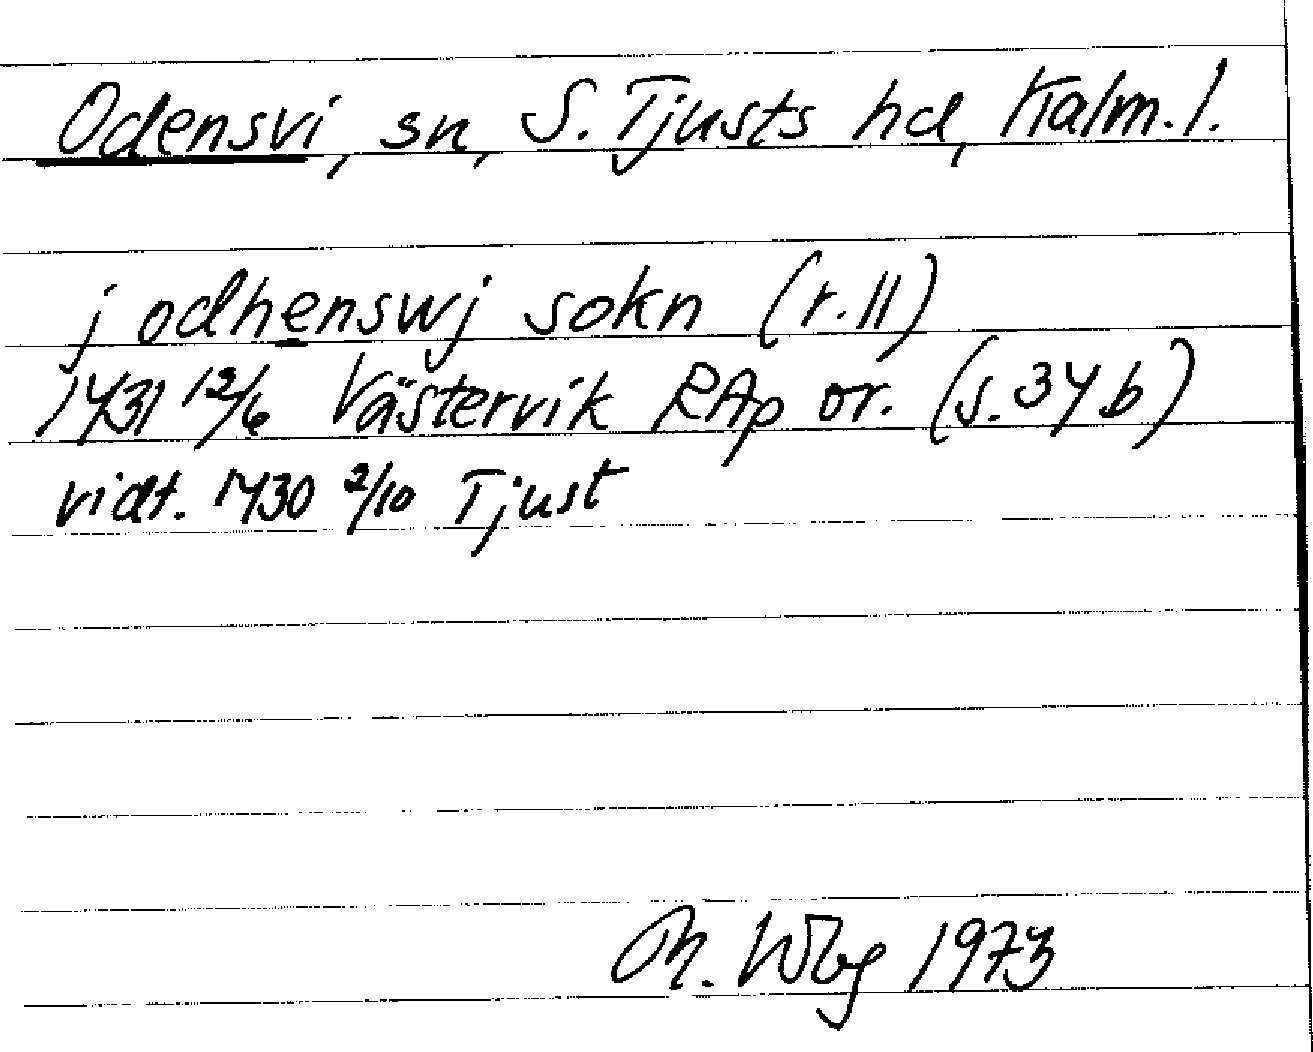 Odensvi, sn, S. Tjusts hd, Kalm. l.
j odhenswj sokn (r. 11)
1431 12/6 Västervik RAp or. (s. 34 b)
vidt. 1430 2/10 Tjust
Th. Wbg 1973